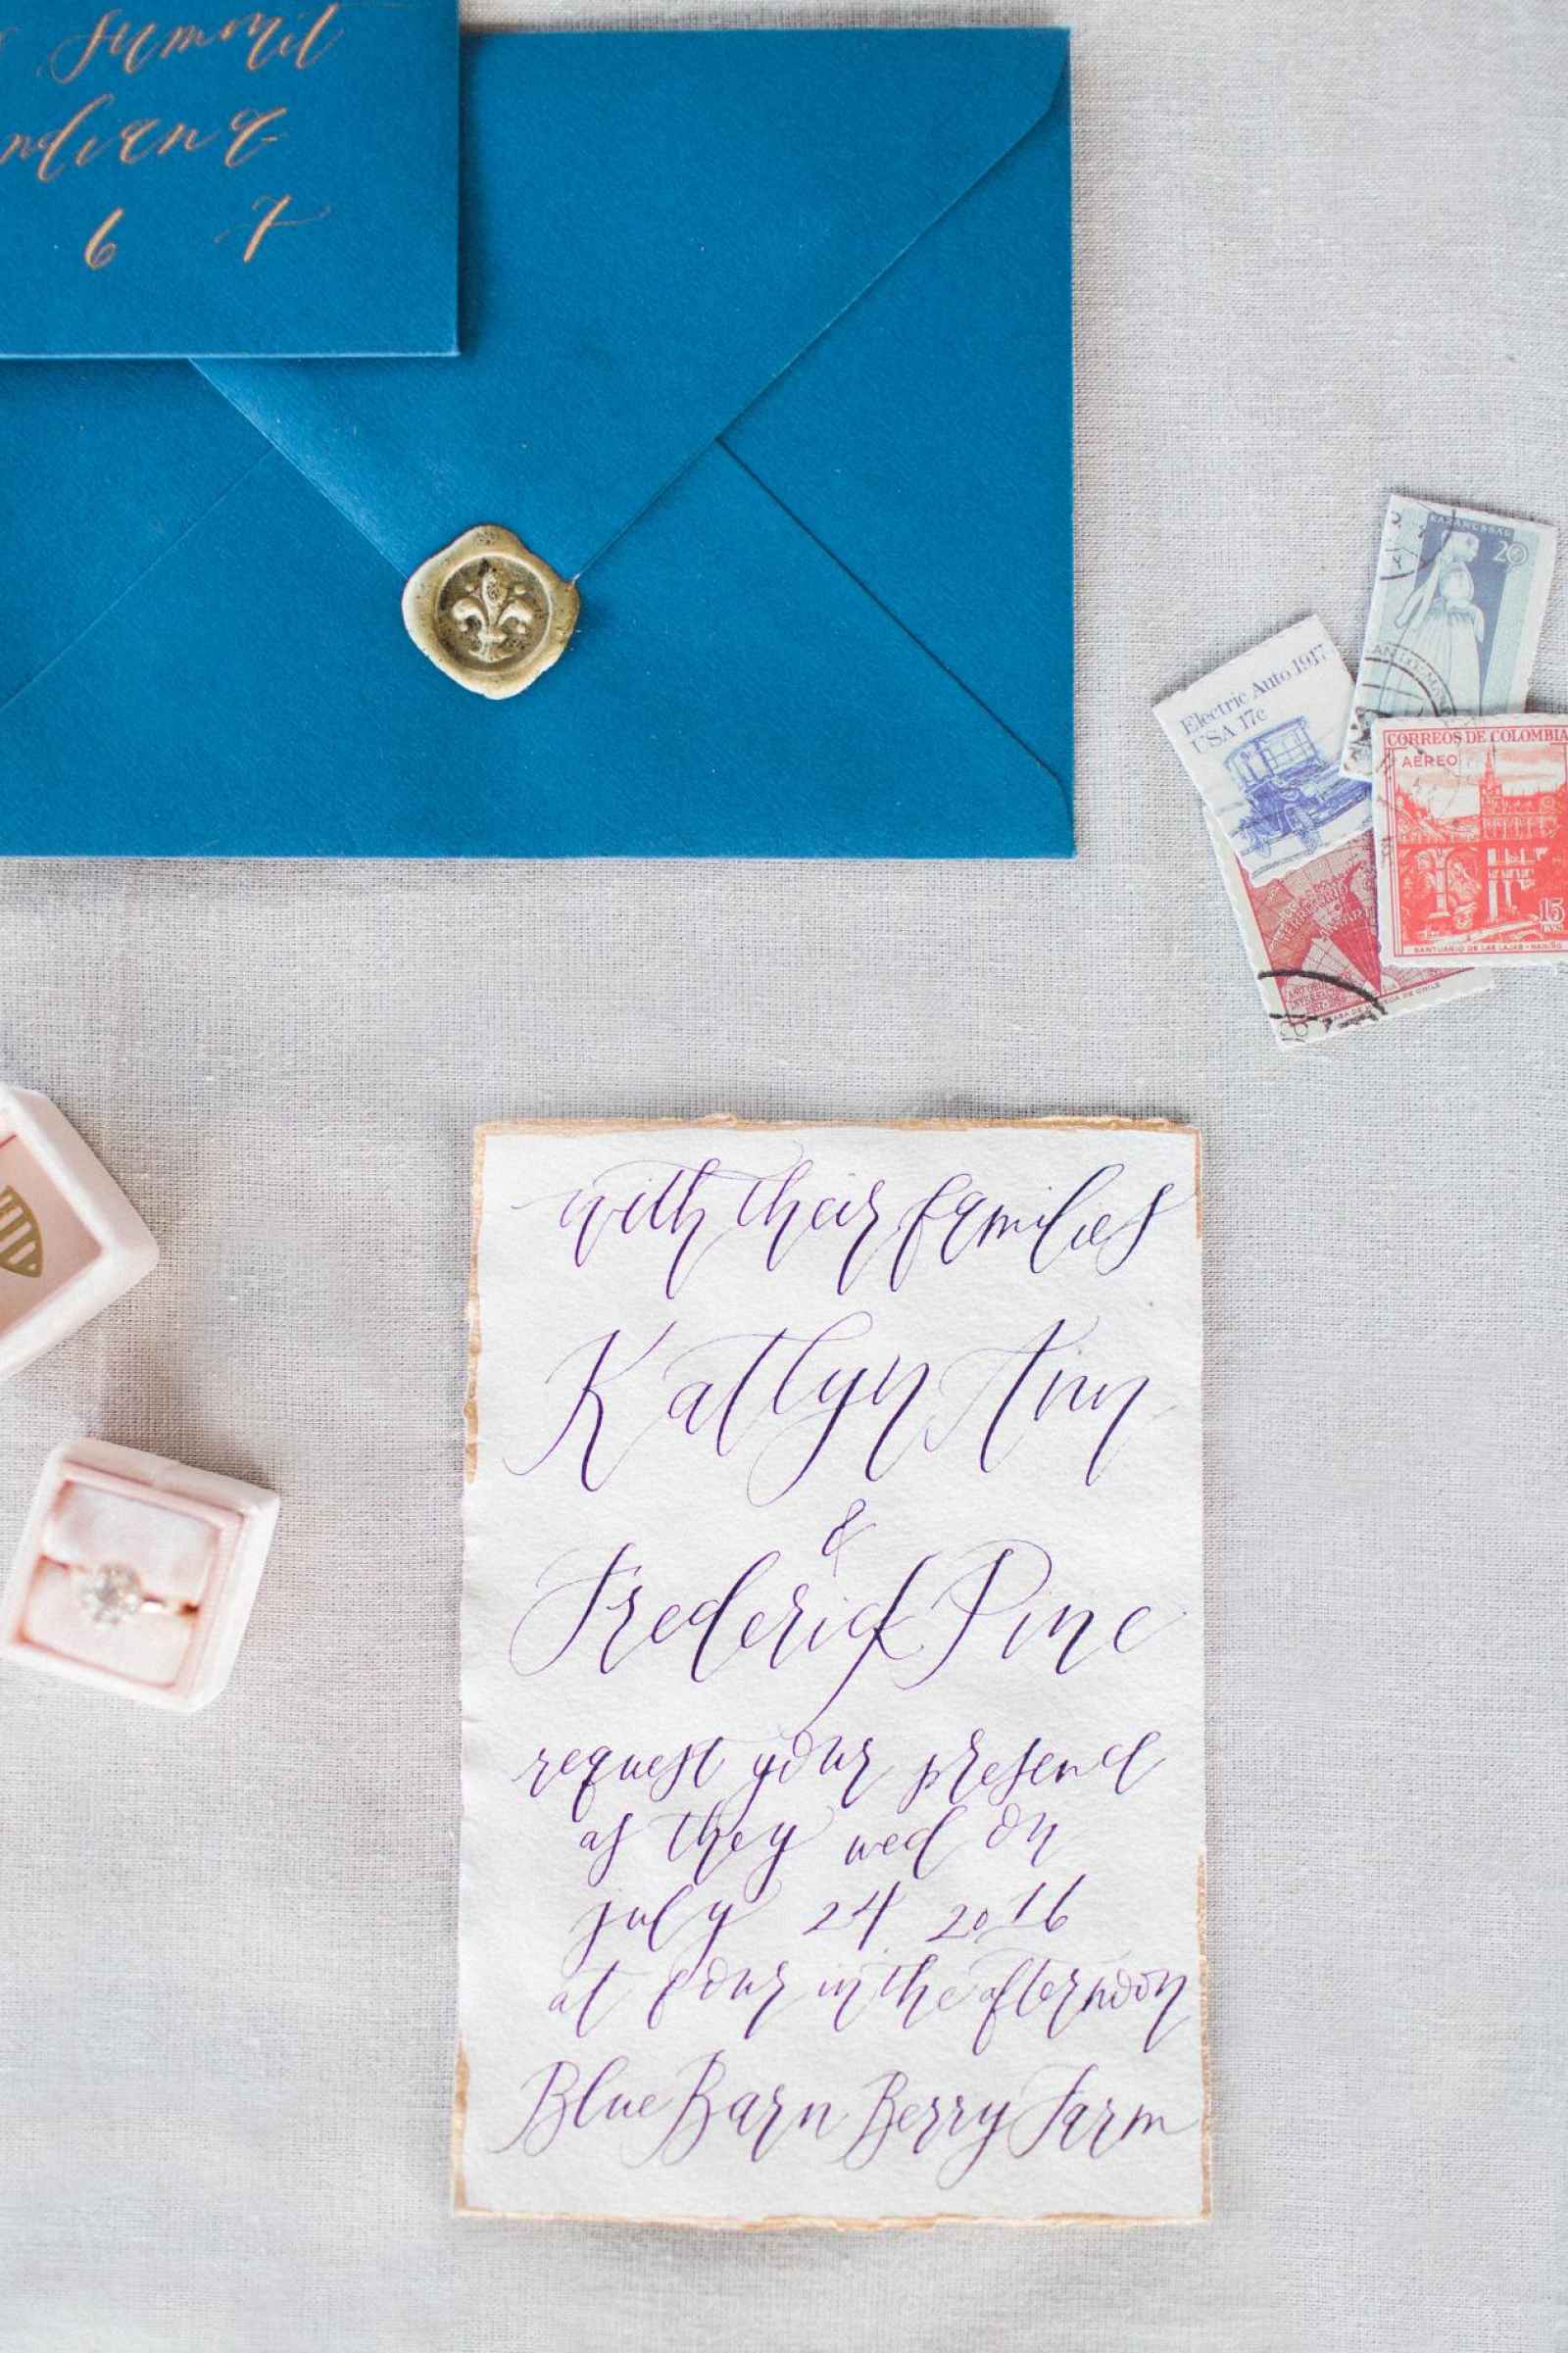 summit
ndiana
6 7
20
Electric Auto 1917
USA 17c
CORREOS DE COLOMBIA
AEREO
15
SANTUARIO DE LAS LAJAS - NARIÑO
with their families
Katlyn Ann
&
Frederick Pine
request your presence
as they wed on
july 24 2016
at four in the afternoon
Blue Barn Berry Farm